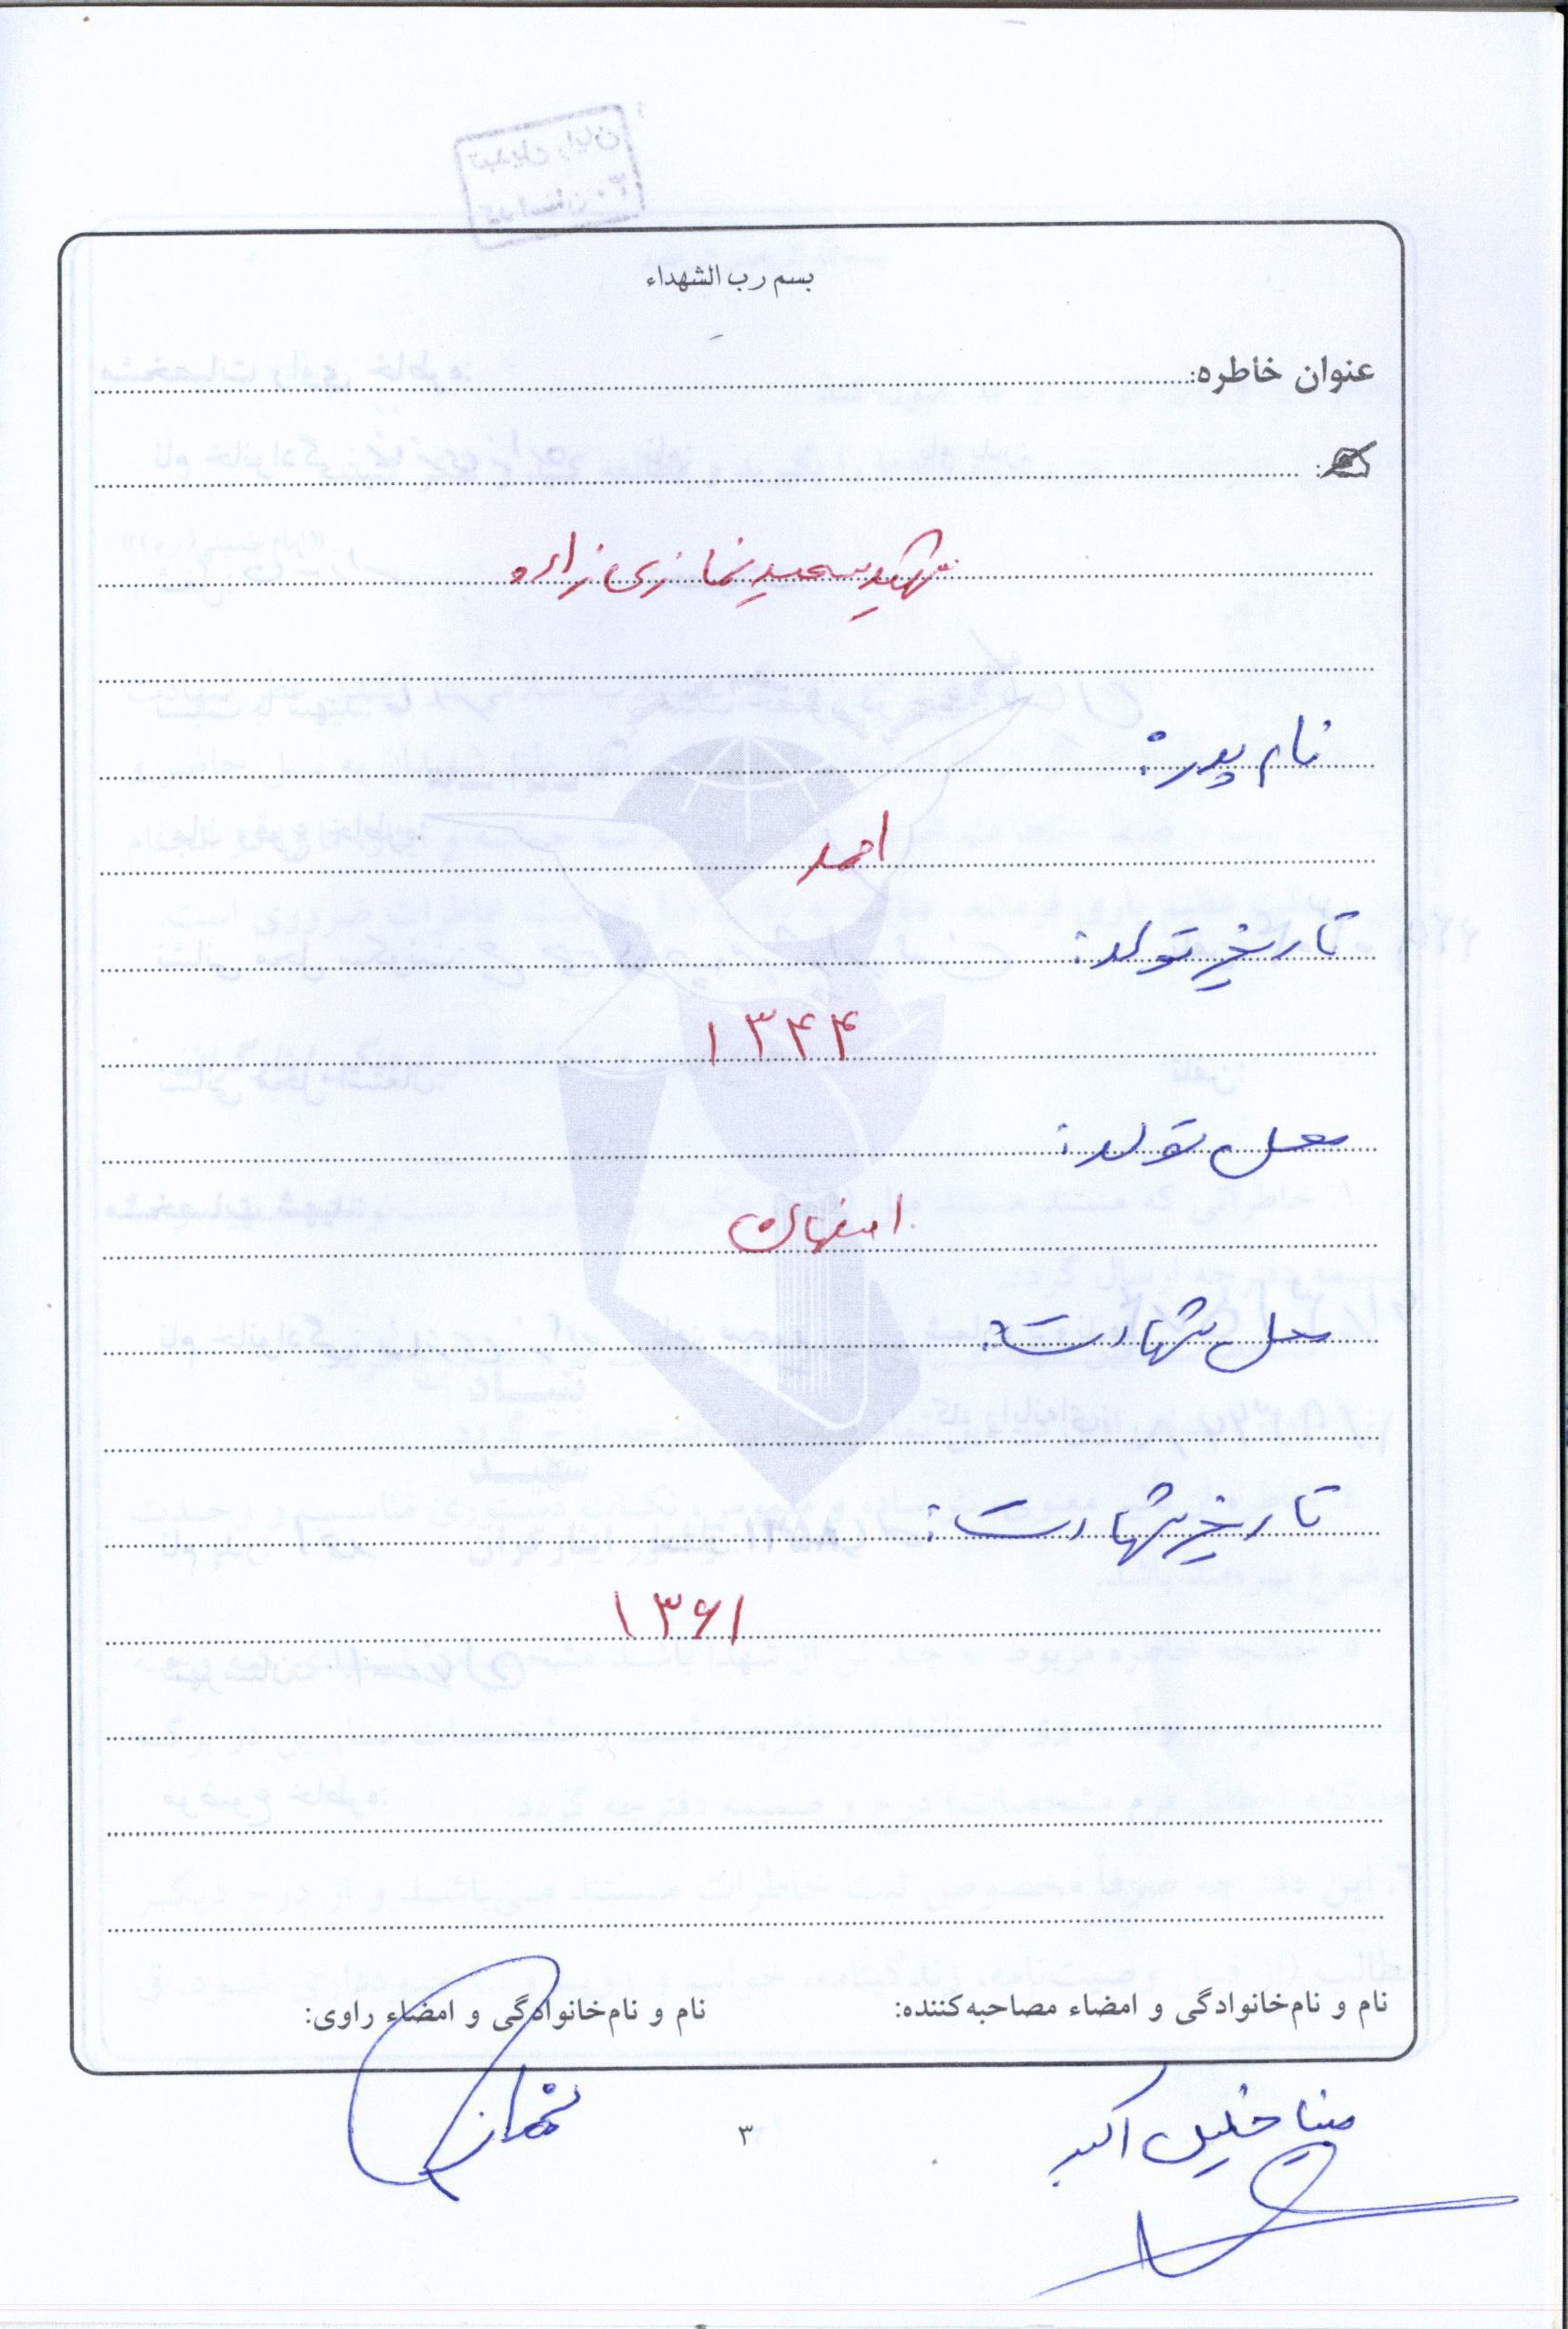 بسم رب الشهداء
عنوان خاطره:
شهید سعید نمازی زاده
نام پدر:
احمد
تاریخ تولد:
۱۳۴۴
محل تولد:
اصفهان
محل شهادت:
تاریخ شهادت:
۱۳۶۱
نام و نام‌خانوادگی و امضاء مصاحبه‌کننده: نام و نام‌خانوادگی و امضاء راوی:
مینا خلیل اکبر
۳